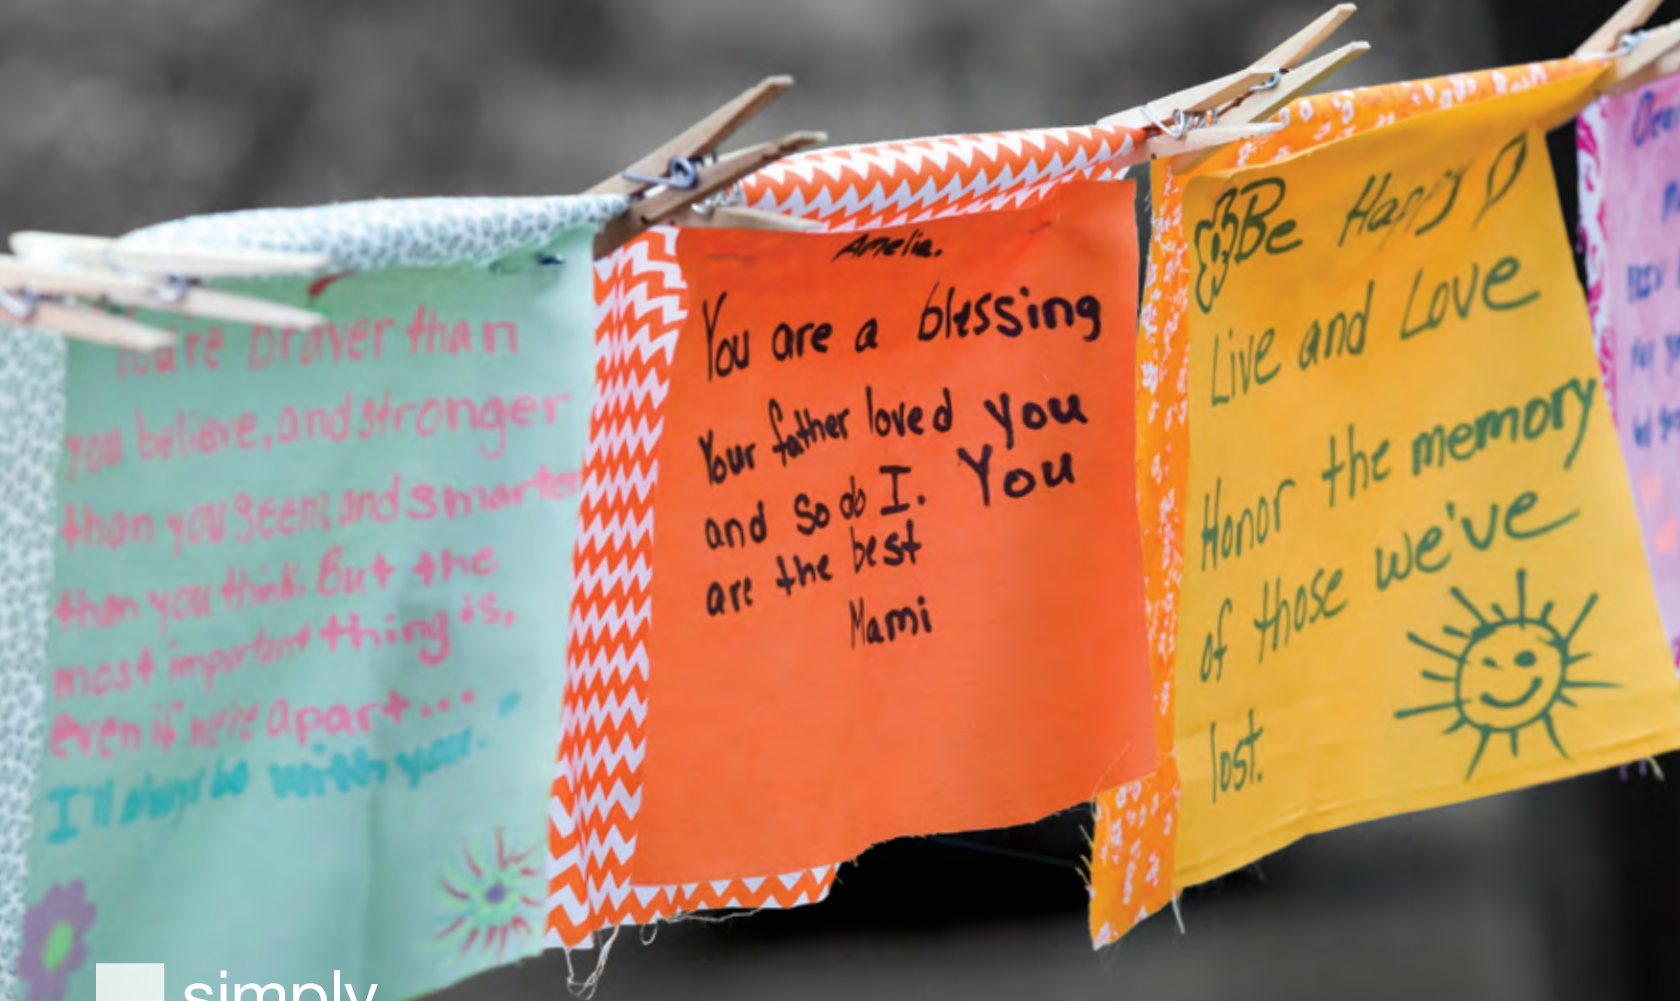 You're braver than
you believe, and stronger
than you seem, and smarter
than you think. But the
most important thing is,
even if we're apart...
I'll always be with you.
Amelia.
You are a blessing
Your father loved you
and so do I. You
are the best
Mami
Be Happy
Live and Love
Honor the memory
of those we've
lost.
simply